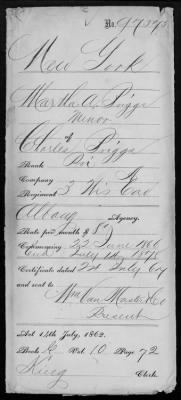 No. 97595
New York
Martha A. Briggs
Minor
of
Charles Briggs
Rank Pri
Company E
Regiment 3 Wis Cav
Albany Agency.
Rate per month $ 8
Commencing 22 June 1866
End July 1878
Certificate dated 24 July
and sent to
Present
Act 14th July, 1862.
Book E Vol. 10 Page 72
King Clerk.